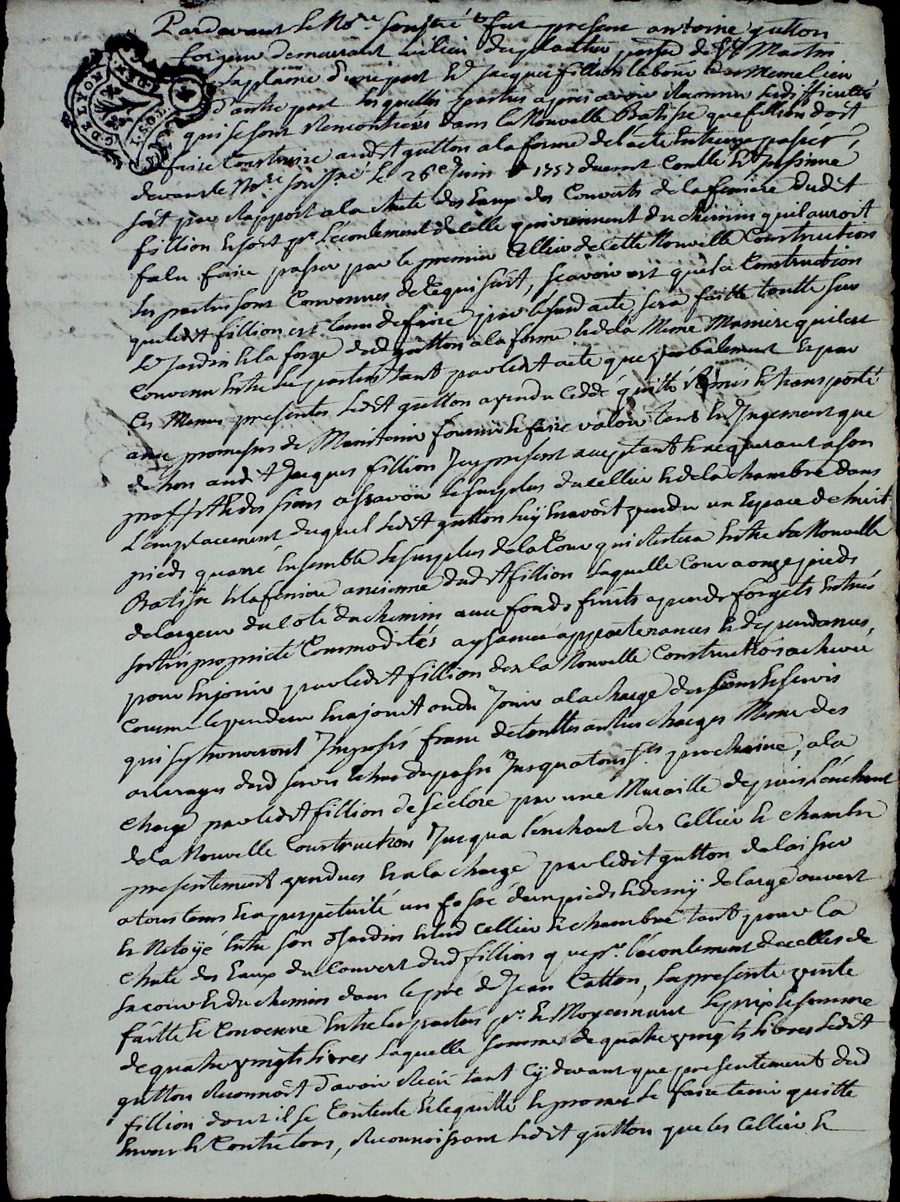 Pardevant le No.re soussigné fut present antoine gutton
forgeur demeurant au lieu du planthu parr.se de St Martin
la plaine d'une part & Jacques fillion laboureur dud meme lieu
d'autre part lesquelles parties apres avoir raisonné les difficultés
qui se sont Rencontrées dans la Nouvelle Batisse que fillion doit
faire Construire aud.t gutton a la forme de l'acte entreux passé
devant le No.re soussné le 26e Juin 1757 duement Contlé & Insinué
soit par Raport a la chute des Eaux des Couverts de la feniere dudit
fillion et soit pr. L'ecoulement de celle qui viennent du chemin quil auroit
falu faire passer par le premier Cellier de cette Nouvelle Construction
les parties sont Convenues de ce qui suit, scavoir est que la Construction
que led.t fillion est tenu de faire par le susd acte sera faitte toutte sur
le Jardin & la forge dud gutton a la forme & de la Meme Maniere quil est
Convenu Entre les parties tant par led.t acte que verbalement & par
Ces Memes presentes led.t gutton a vendu Ceddé quitté Remis & transporté
avec promesses de Maintenir fournir & faire valoir tant en Jugement que
dehors aud.t Jacques fillion Icy present acceptant & acquerant a son
proffit & des siens a scavoir le surplus du cellier & de la chambre dans
L'emplacement duquel led.t gutton luy En avoit vendu un Espace de huit
pieds quarré Ensemble le surplus de la Cour qui Restera Entre sa Nouvelle
Batisse & la feniere ancienne dud.t fillion laquelle Cour a onze pieds
de largeur du coté du chemin avec fonds fruits aprends forgets Entrées
sorties proprieté Commodités aysances appartenances & dependances,
pour En jouir par led.t fillion des la Nouvelle Construction achevée
Comme le vendeur En a jouit ou du Jouir a la charge des Cens & servis
qui sy trouveront Imposés franc de touttes autres charges Meme des
arrerages dud servis & du passé Jusqua toussts prochaine, a la
charge par led.t fillion de se clore par une Muraille depuis L'enchant
de la Nouvelle Construction Jusqua l'enchant des Cellier & chambre
presentement vendues & a la charge par ledit gutton de laisser
a tous tems & a perpetuité un fossé d'un pied & demÿ de large ouvert
& Netoÿé Entre son Jardin & lesd Cellier & chambre tant pour la
Chute des Eaux du Couvert dud fillion que pr. l'ecoulement de celles de
sa cour & du chemin dans le pré de Jean Catton, la presente vente
faitte & Convenue Entre les parties pr. & Moyennant le prix & somme
de quatre vingts livres laquelle somme de quatre vingts livres ledit
gutton Reconnoit d'avoir Recu tant cÿ devant que presentement dud
fillion dont il se Contente & le quitte & promet le faire tenir quitte
Envers & Contre tous, Reconnoissant ledit gutton que les Cellier &